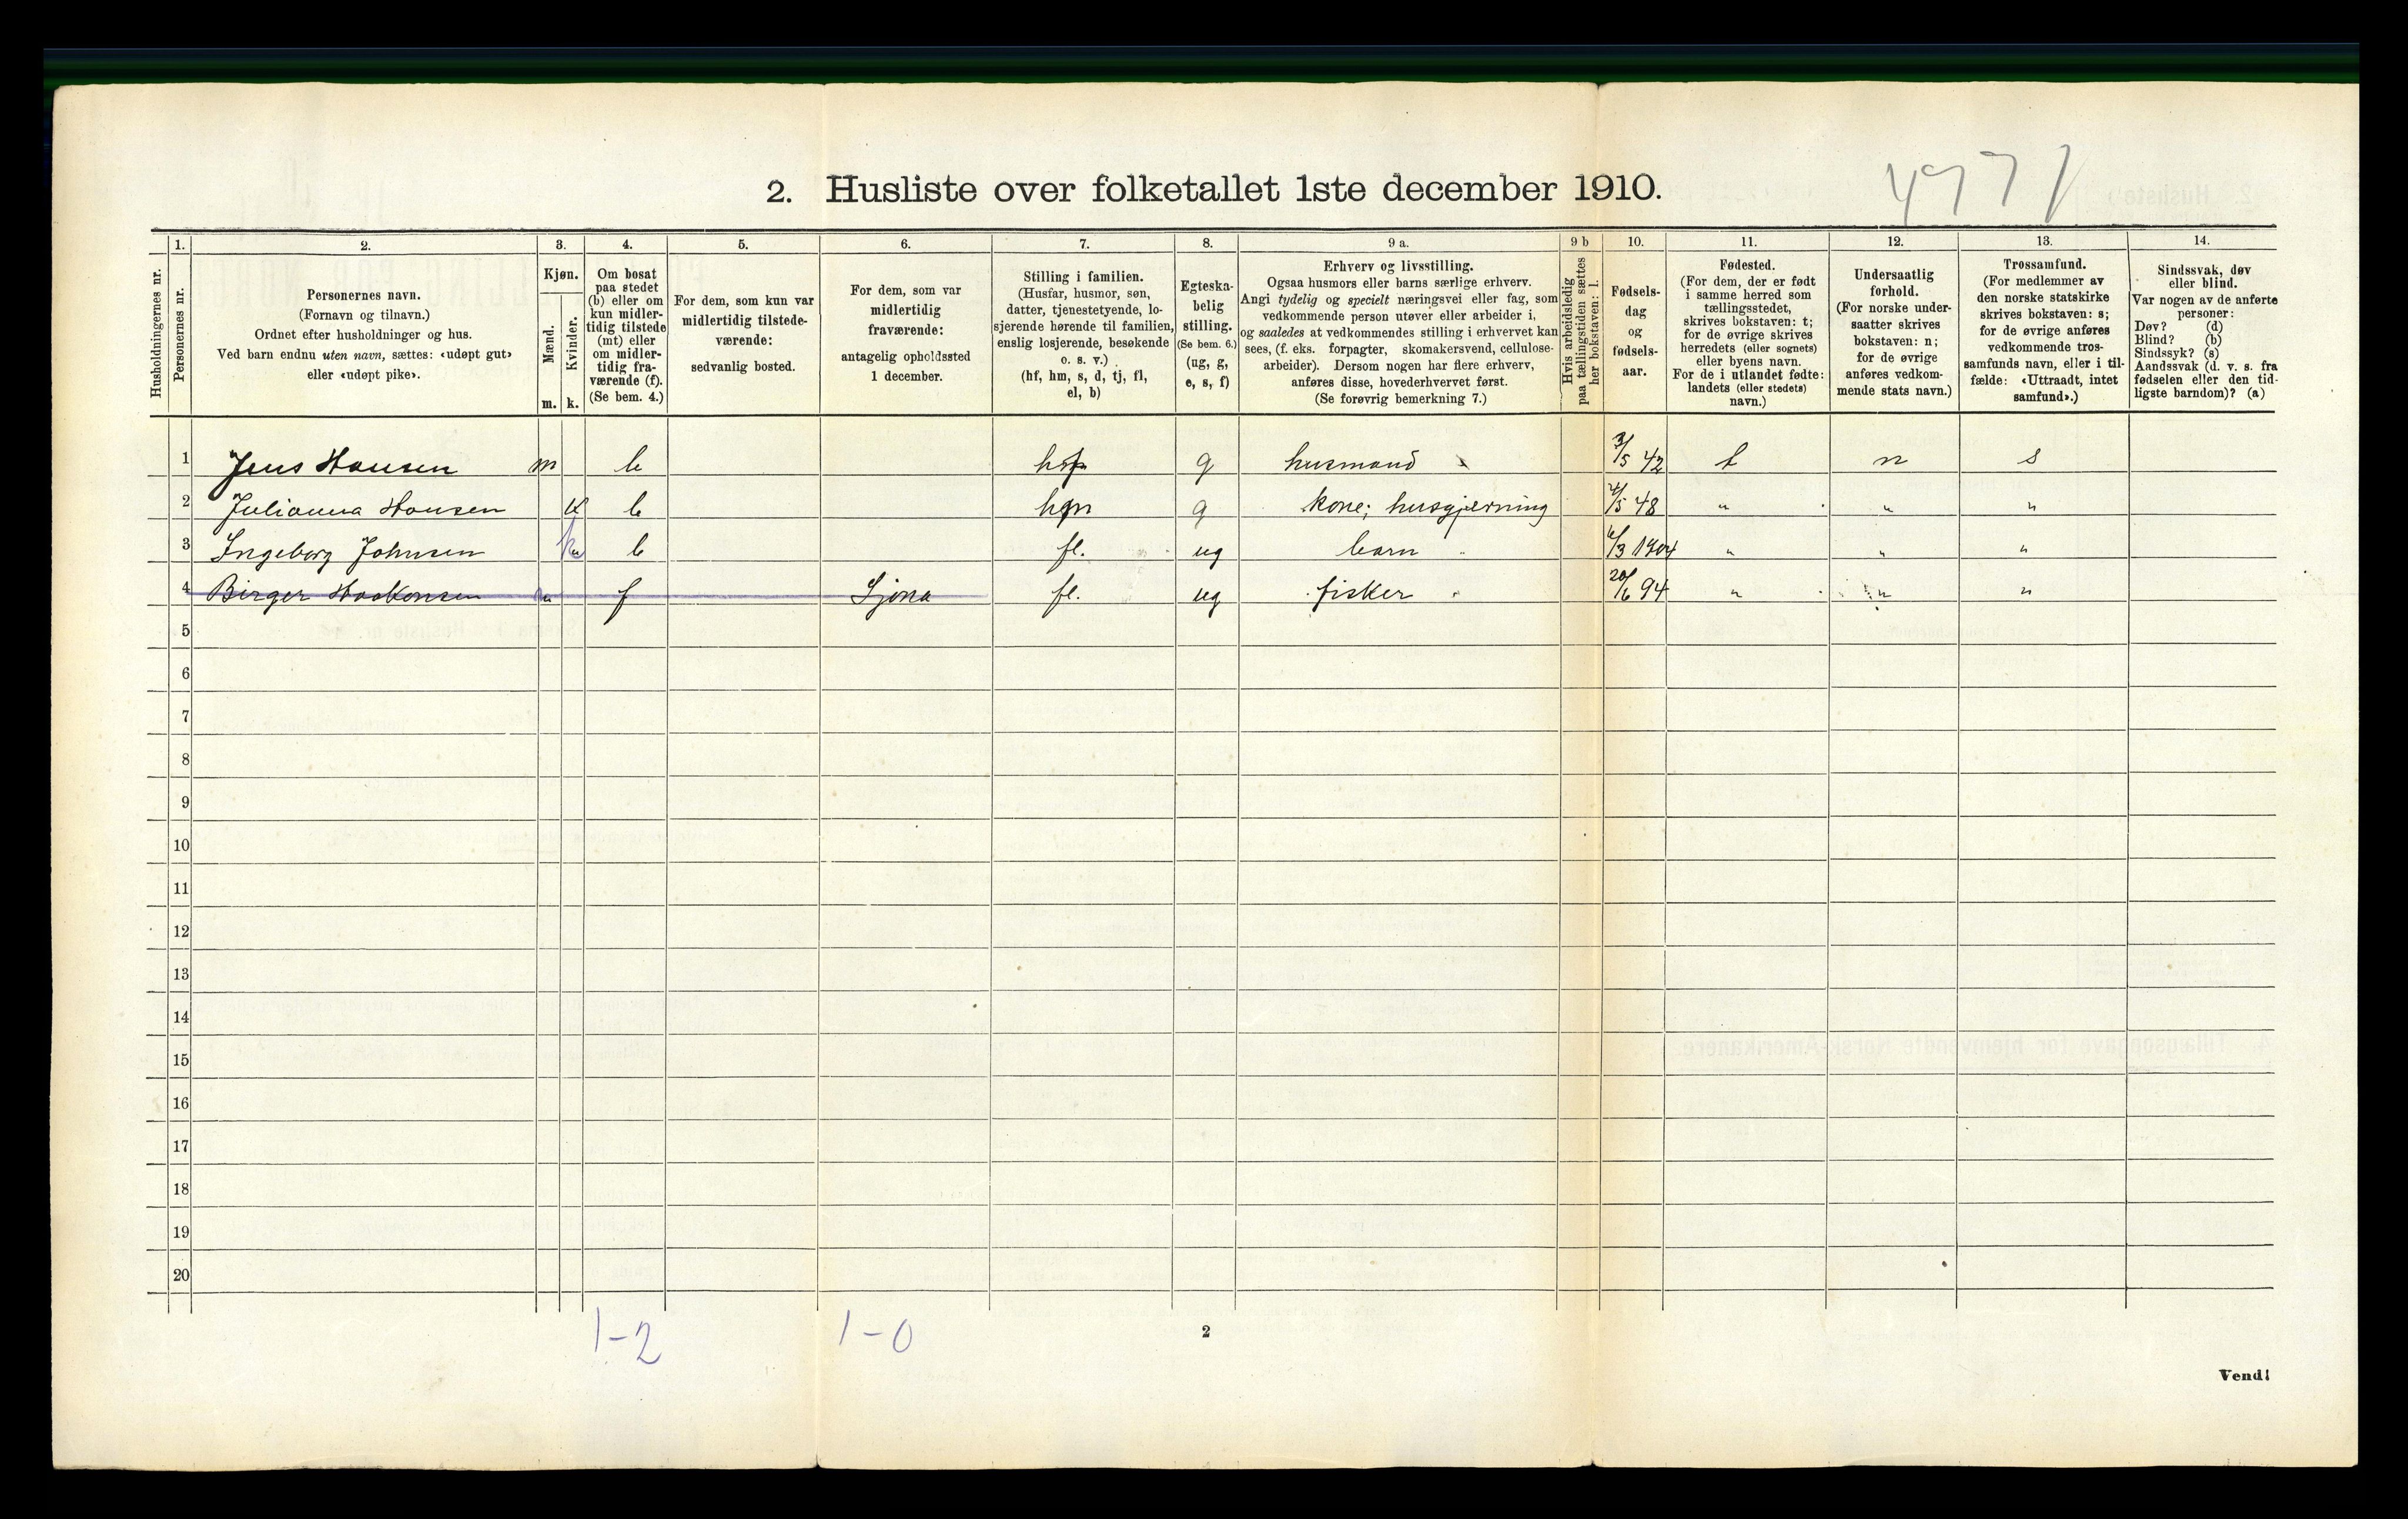 2. Husliste over folketallet 1ste december 1910.
Husholdningernes nr.
1.
Personernes nr.
2.
Personernes navn.
(Fornavn og tilnavn.)
Ordnet efter husholdninger og hus.
Ved barn endnu uten navn, sættes: «udøpt gut»
eller «udøpt pike».
3.
Kjøn.
Mænd.
Kvinder.
m. k.
4.
Om bosat
paa stedet
(b) eller om
kun midler-
tidig tilstede
(mt) eller
om midler-
tidig fra-
værende (f).
(Se bem. 4.)
5.
For dem, som kun var
midlertidig tilstede-
værende:
sedvanlig bosted.
6.
For dem, som var
midlertidig
fraværende:
antagelig opholdssted
1 december.
7.
Stilling i familien.
(Husfar, husmor, søn,
datter, tjenestetyende, lo-
sjerende hørende til familien,
enslig losjerende, besøkende
o. s. v.)
(hf, hm, s, d, tj, fl,
el, b)
8.
Egteska-
belig
stilling.
(Se bem. 6.)
(ug, g,
e, s, f)
9 a.
Erhverv og livsstilling.
Ogsaa husmors eller barns særlige erhverv.
Angi tydelig og specielt næringsvei eller fag, som
vedkommende person utøver eller arbeider i,
og saaledes at vedkommendes stilling i erhvervet kan
sees, (f. eks. forpagter, skomakersvend, cellulose-
arbeider). Dersom nogen har flere erhverv,
anføres disse, hovederhvervet først.
(Se forøvrig bemerkning 7.)
9 b
Hvis arbeidsledig
paa tællingstiden sættes
her bokstaven: l.
10.
Fødsels-
dag
og
fødsels-
aar.
11.
Fødested.
(For dem, der er født
i samme herred som
tællingsstedet,
skrives bokstaven: t;
for de øvrige skrives
herredets (eller sognets)
eller byens navn.
For de i utlandet fødte:
landets (eller stedets)
navn.)
12.
Undersaatlig
forhold.
(For norske under-
saatter skrives
bokstaven: n;
for de øvrige
anføres vedkom-
mende stats navn.)
13.
Trossamfund.
(For medlemmer av
den norske statskirke
skrives bokstaven: s;
for de øvrige anføres
vedkommende tros-
samfunds navn, eller i til-
fælde: «Uttraadt, intet
samfund».)
14.
Sindssvak, døv
eller blind.
Var nogen av de anførte
personer:
Døv? (d)
Blind? (b)
Sindssyk? (s)
Aandssvak (d. v. s. fra
fødselen eller den tid-
ligste barndom)? (a)
1 Jens Hansen m b g husmand 42 t n s
2 Julianna Hansen k b g kone; husgjerning 4/5 48 " " "
3 Ingeborg Johnsen k b fl. ug barn 6/3 1904 " " "
4 Birger Haakonsen m f Sjona fl. ug fisker 20/6 94 " " "
5
6
7
8
9
10
11
12
13
14
15
16
17
18
19
20
1-2 1-0
2
Vend!